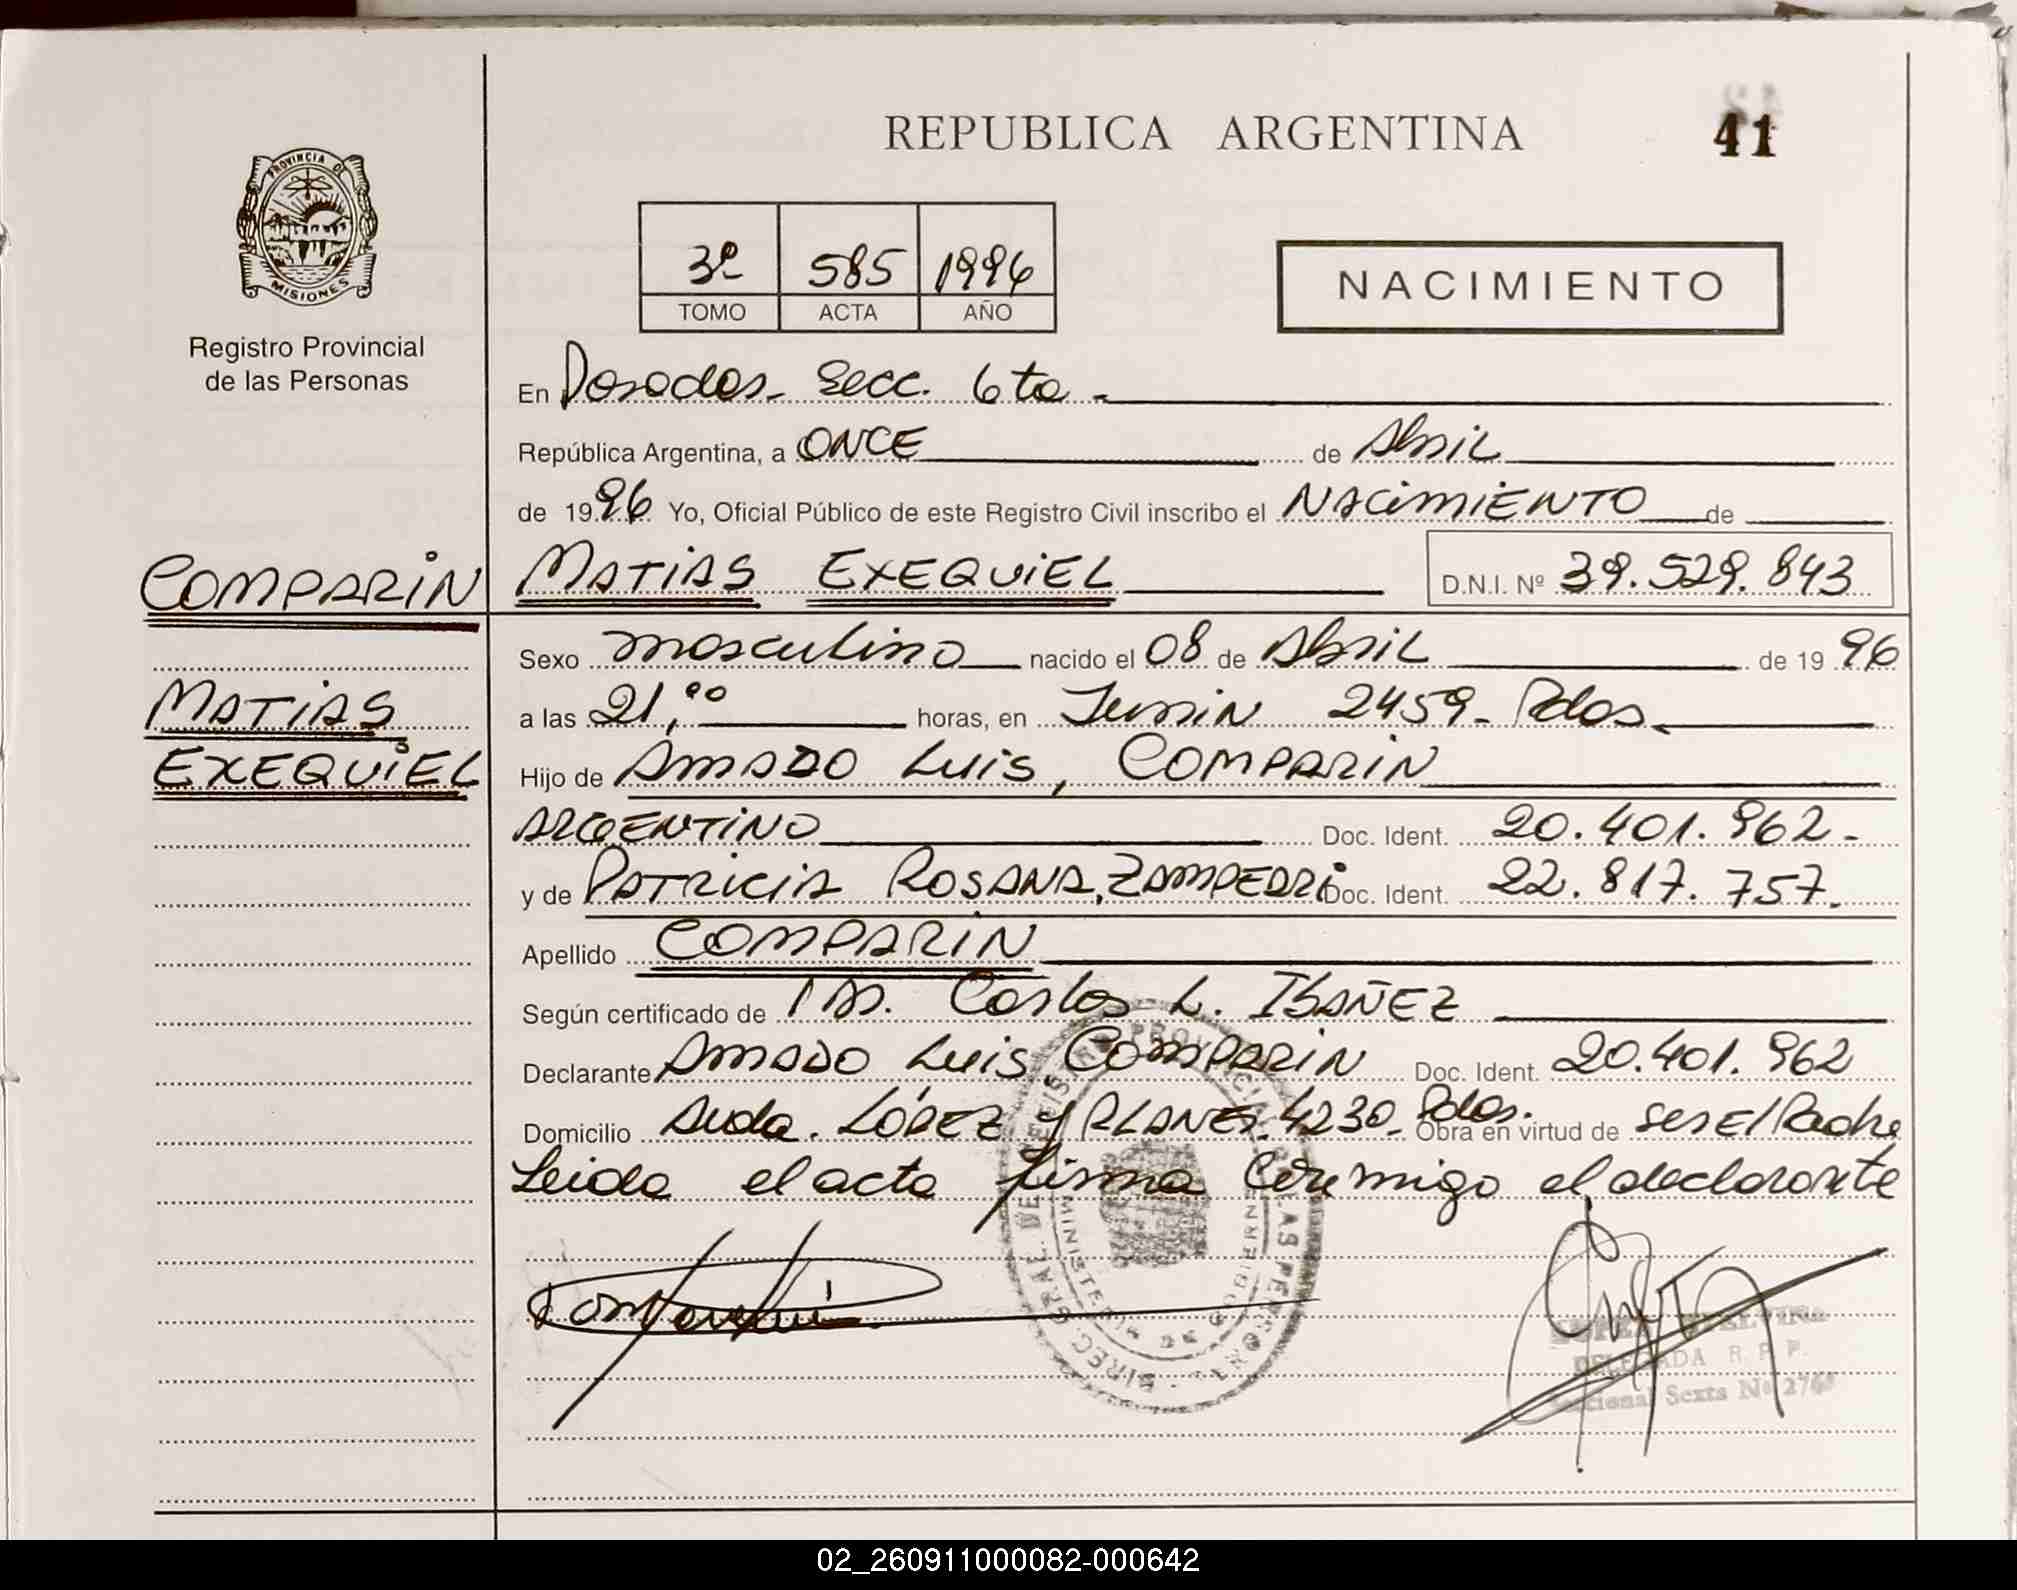 REPUBLICA ARGENTINA
41
PROVINCIA DE
MISIONES
Registro Provincial
de las Personas
3º 585 1996
TOMO ACTA AÑO
NACIMIENTO
En Posadas - Secc. 6ta -
República Argentina, a ONCE de Abril
de 1996 Yo, Oficial Público de este Registro Civil inscribo el NACIMIENTO de
COMPARIN
MATIAS EXEQUIEL D.N.I. Nº 39.529.843
Sexo masculino nacido el 08 de Abril de 1996
MATIAS
a las 21,00 horas, en Junin 2459 - Pdas
EXEQUIEL
Hijo de AMADO LUIS, COMPARIN
ARGENTINO Doc. Ident. 20.401.962 -
y de PATRICIA ROSANA, ZAMPEDRI Doc. Ident. 22.817.757.
Apellido COMPARIN
Según certificado de Carlos L. IBAÑEZ
Declarante AMADO LUIS COMPARIN Doc. Ident. 20.401.962
Domicilio Avda. LÓPEZ y PLANES 4230 - Pdas. Obra en virtud de ser El Padre
Leida el acta firma Conmigo el declarante
DELEGADA R. P. P.
Seccional Sexta Nº
02_260911000082-000642